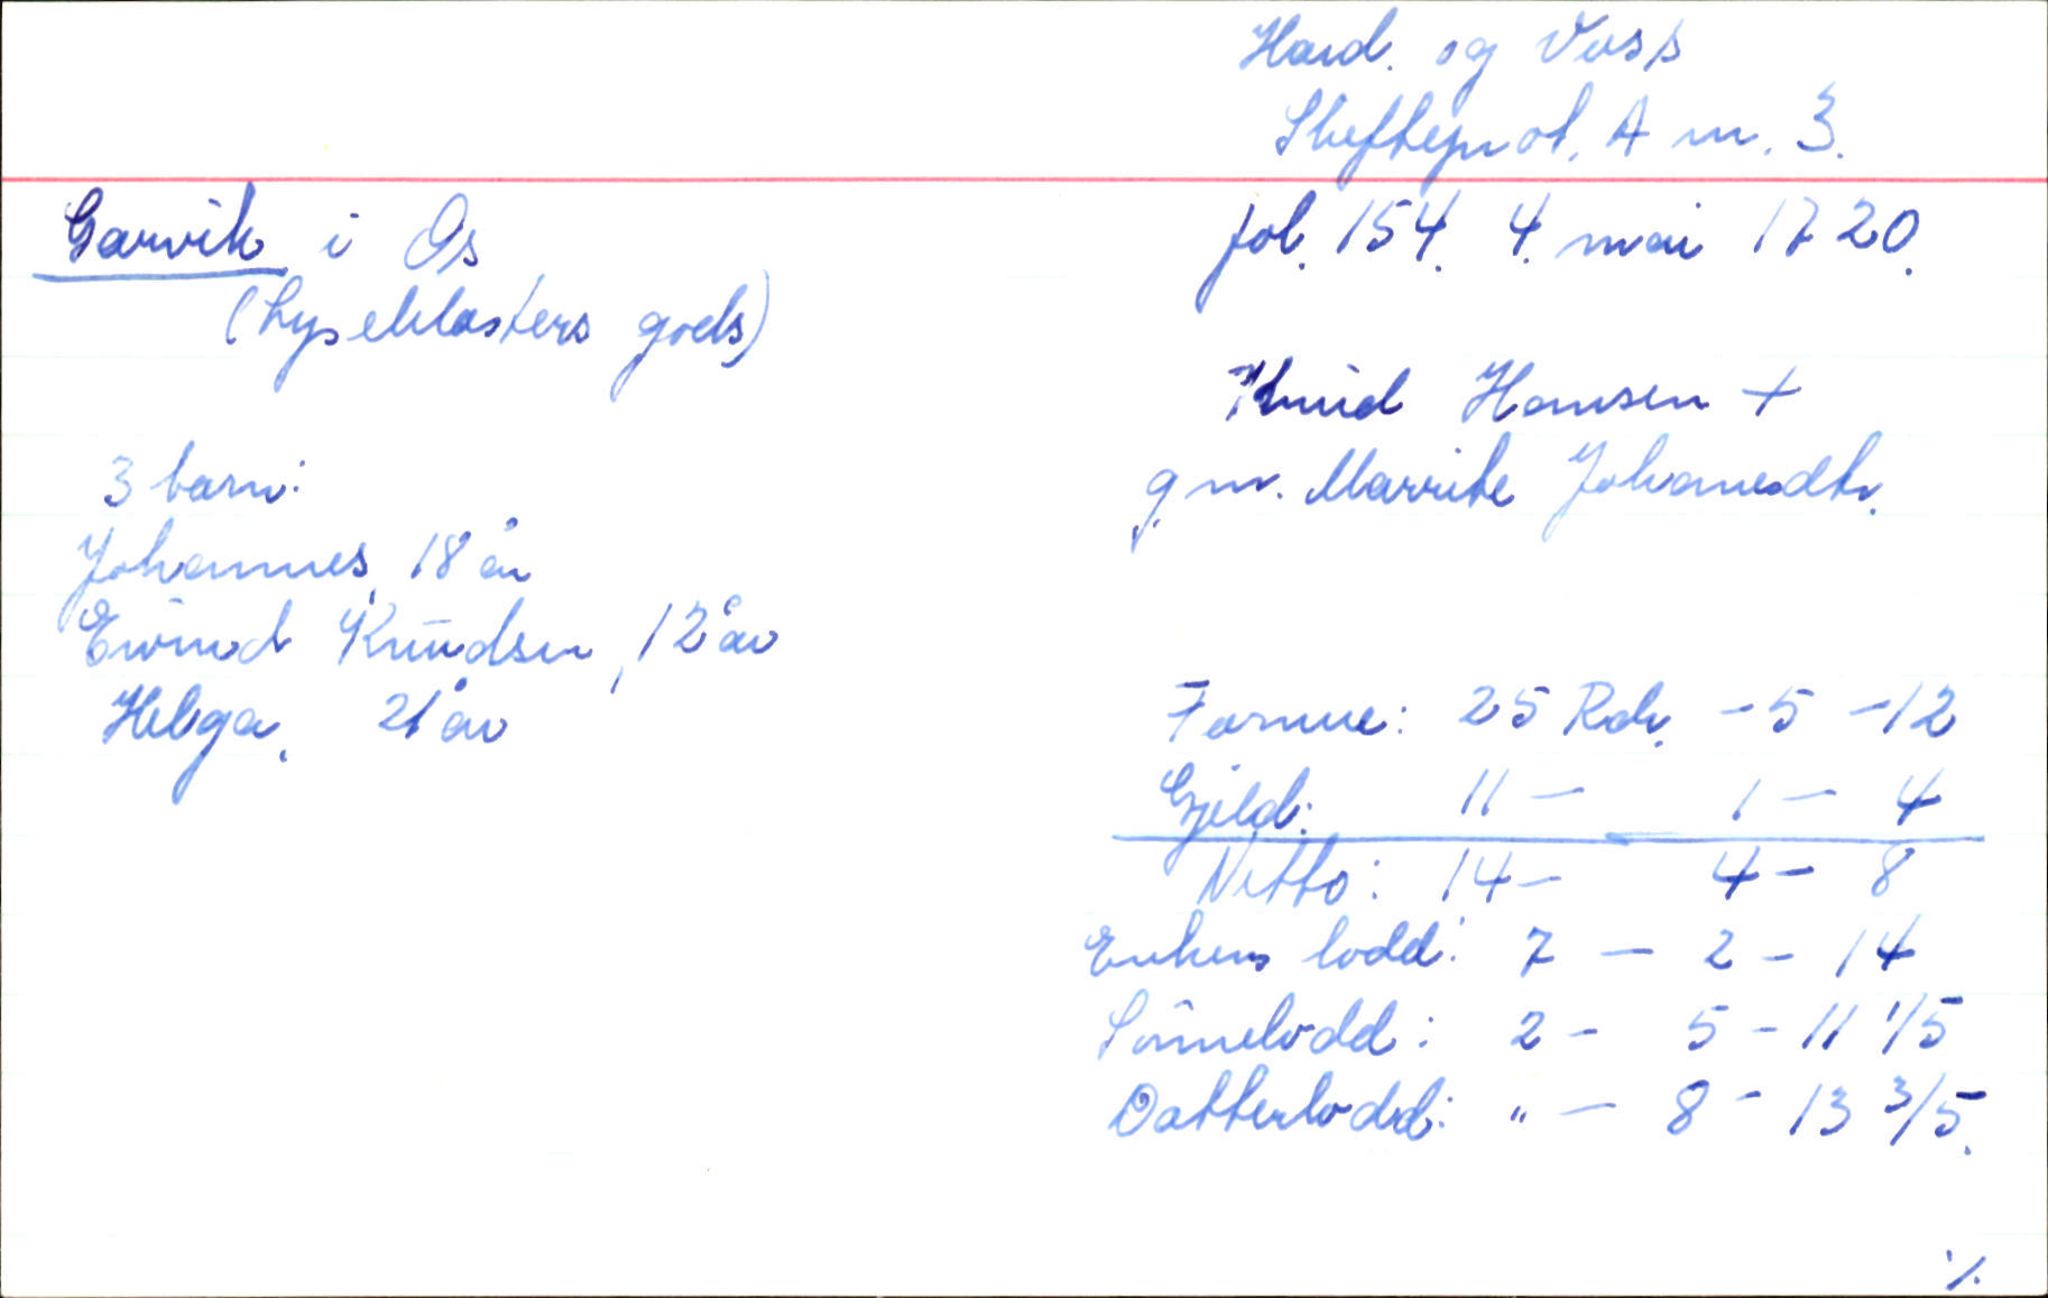 Hard. og Voss
Skifteprot. A nr. 3.
Garvik i Os
fol. 154. 4. mai 1720.
(Lyseklosters gods)
Knud Hansen +
g. m. Marrite Johanesdtr.
3 barn:
Johannes, 18 år
Eivind Knudsen, 12 år
Helga, 21 år
Formue: 25 Rdr. - 5 - 12
Gjeld: 11 - 1 - 4
Netto: 14 - 4 - 8
Enkens lodd: 7 - 2 - 14
Sønnelodd: 2 - 5 - 11 1/5
Datterlodd: " - 8 - 13 3/5.
./.